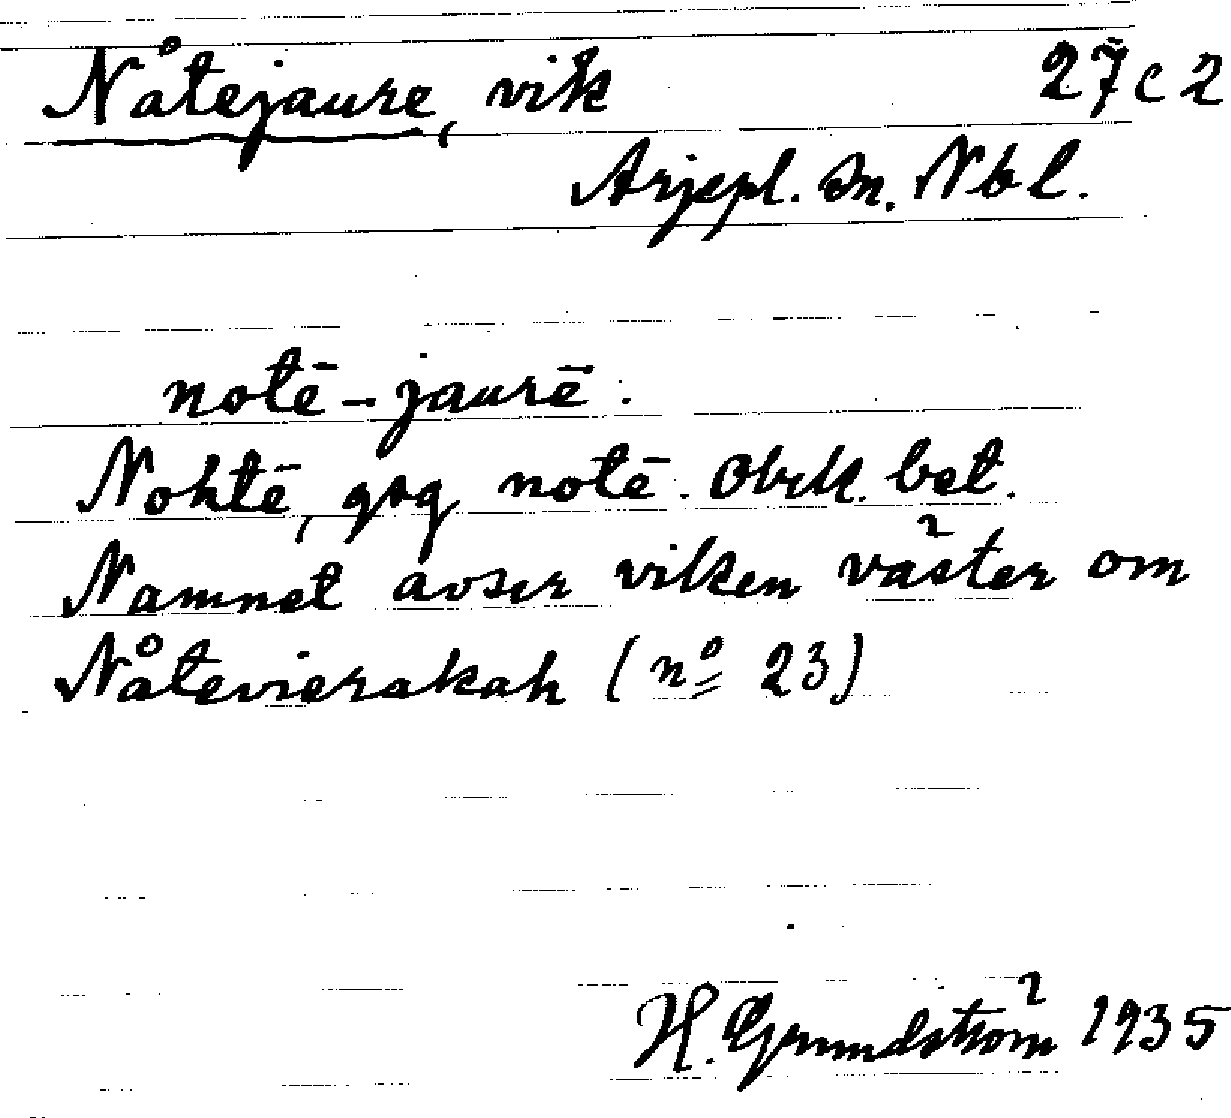 Nåtejaure, vik 27c2
Arjepl. sn. Nbl.
notē-jaurē.
Nohtē, gsg notē. Obek. bet.
Namnet avser viken väster om
Nåtevierakah (nº 23)
H. Grundström 1935